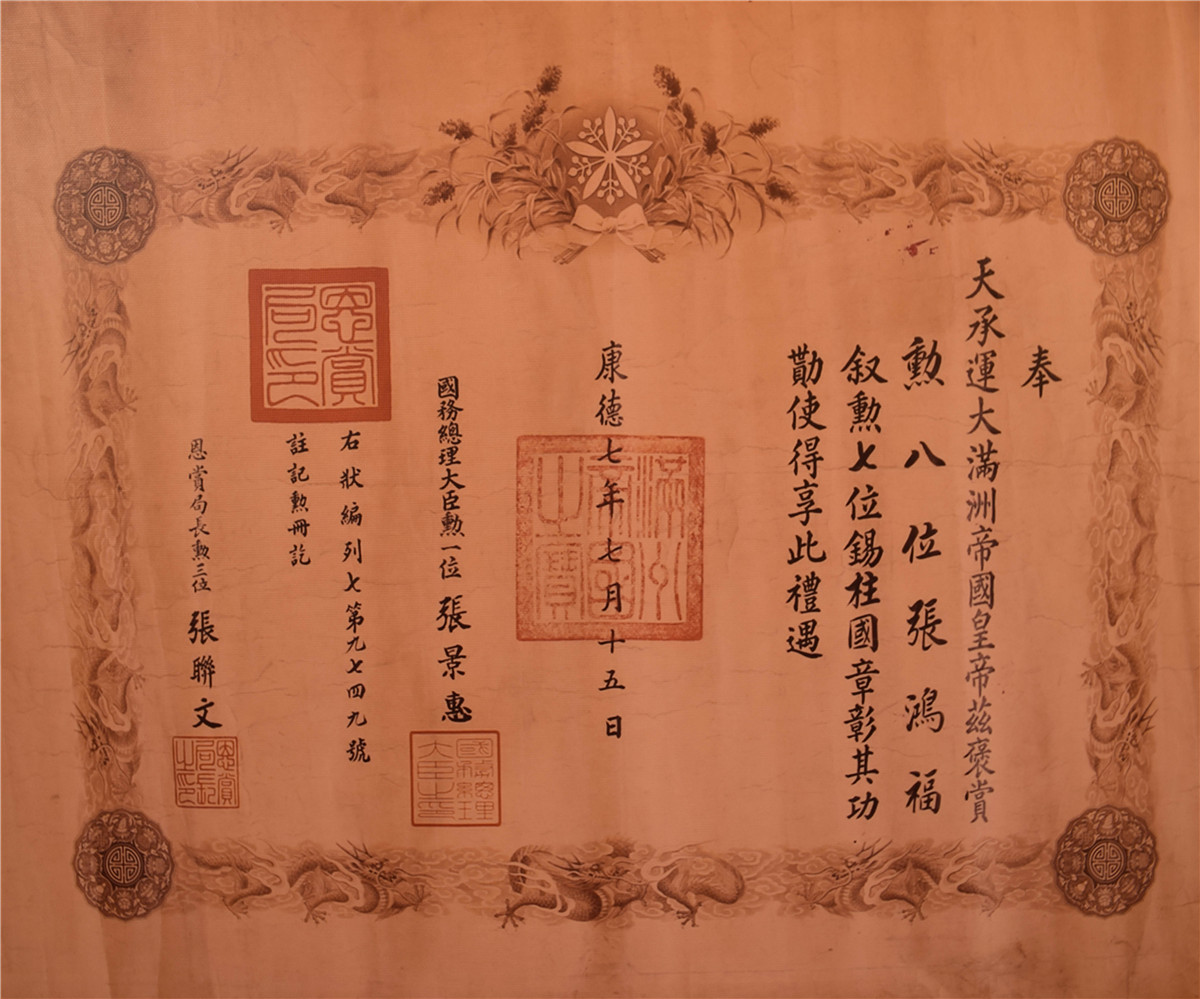 奉
天承運大滿洲帝國皇帝茲褒賞
勲八位張鴻福
叙勲七位錫柱國章彰其功
勩使得享此禮遇
康德七年七月十五日
滿洲帝國之寶
國務總理大臣勲一位張景惠
國務總理大臣之印
右狀編列七第九七四九號
註記勲冊訖
恩賞局印
恩賞局長勲三位張聯文
恩賞局長之印